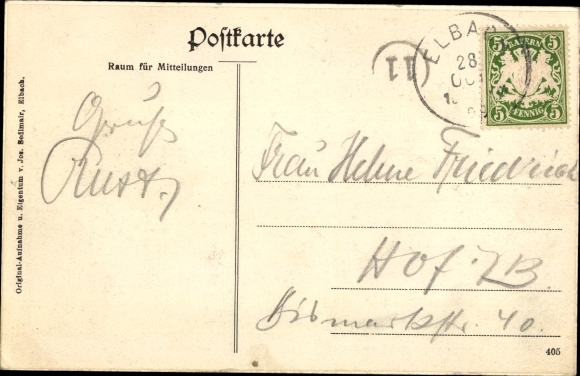 Postkarte
Raum für Mitteilungen
Original-Aufnahme u. Eigentum v. Jos. Sedlmair, Elbach.
Gruß
ELBACH
28
OCT
11
5 BAYERN 5
5 PFENNIG 5
Frau Helene Friedrich
Hof i/B.
Bismarkstr. 40.
405